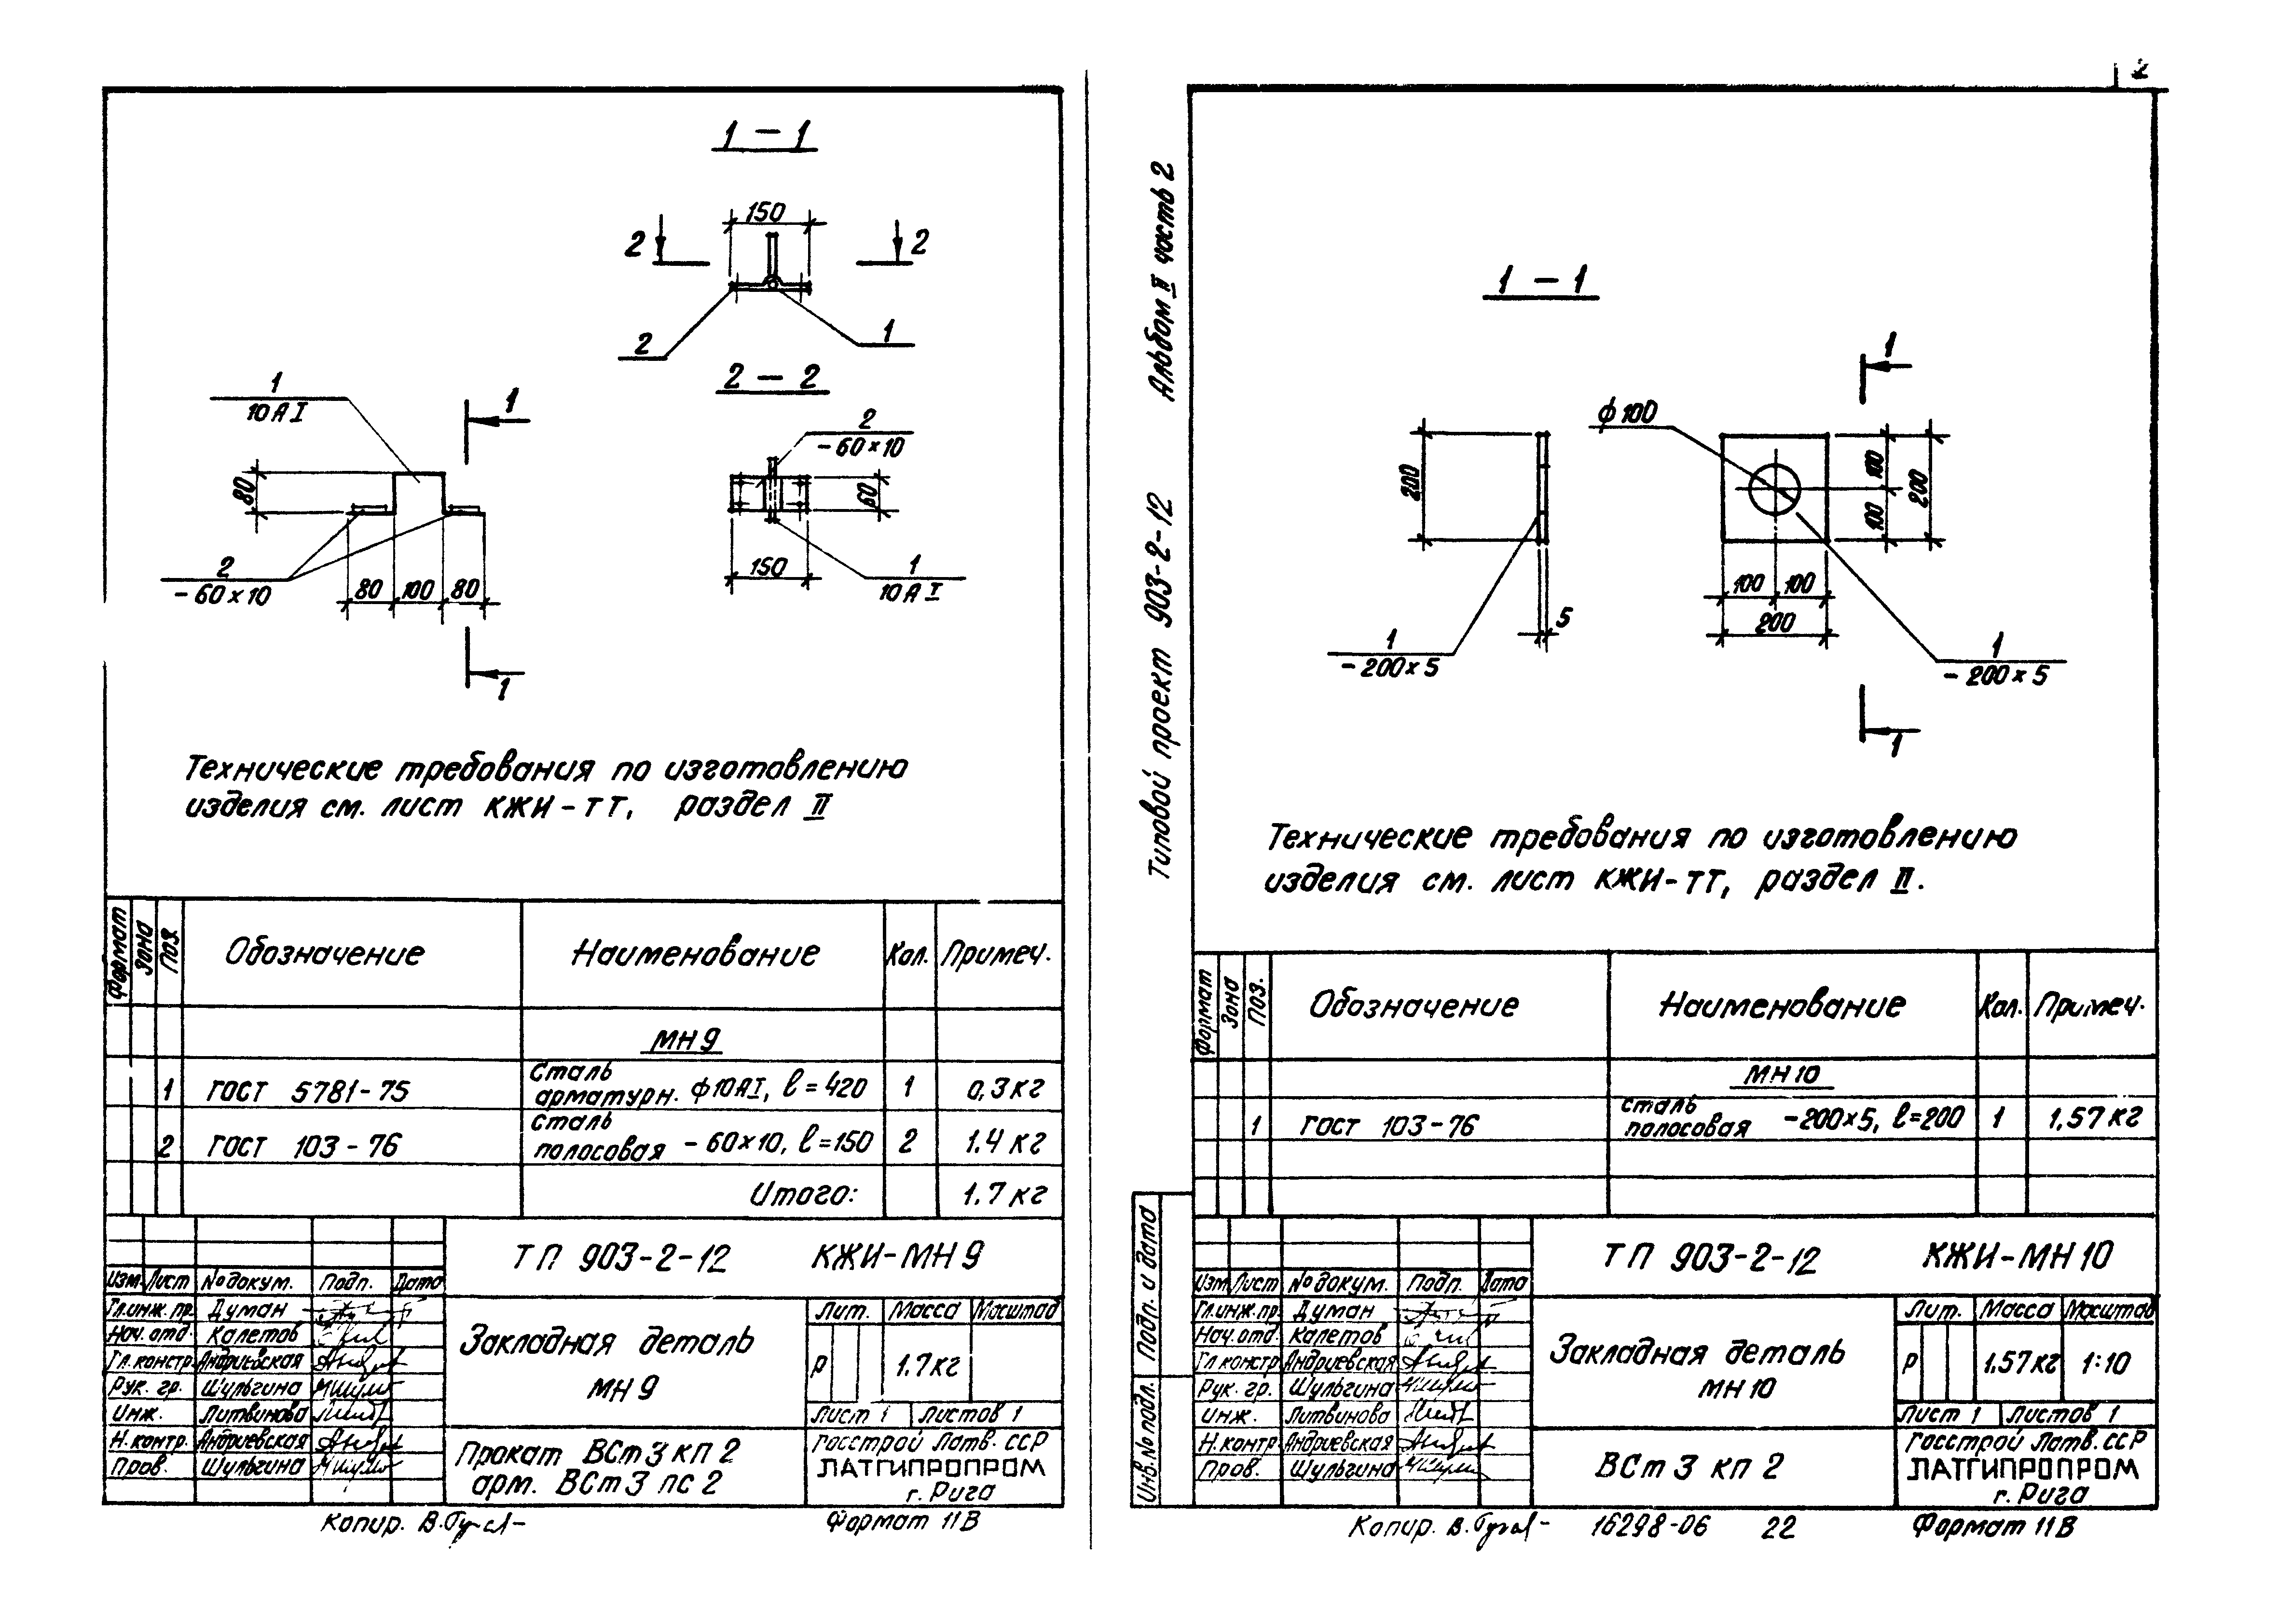 1 - 1
150
2 2
2 1
2 - 2
1
10 А I
1
2
- 60 × 10
80
60
2
- 60 × 10
80 100 80
150
1
10 А I
1
Технические требования по изготовлению
изделия см. лист КЖИ-ТТ, раздел II
Формат Зона Поз. Обозначение Наименование Кол. Примеч.
МН 9
1 ГОСТ 5781-75 Сталь арматурн. ф10АI, ℓ=420 1 0,3 кг
2 ГОСТ 103-76 Сталь полосовая - 60×10, ℓ=150 2 1.4 кг
Итого: 1.7 кг
ТП 903-2-12 КЖИ-МН 9
Изм. Лист № докум. Подп. Дата
Гл.инж.пр. Думан
Нач.отд. Калетов
Гл.констр. Андриевская
Рук. гр. Шульгина
Инж. Литвинова
Н.контр. Андриевская
Пров. Шульгина
Закладная деталь
МН 9
Лит. Масса Масштаб
Р 1.7кг
Лист 1 Листов 1
Прокат ВСт 3 кп 2
арм. ВСт 3 пс 2
Госстрой Латв. ССР
ЛАТГИПРОПРОМ
г. Рига
Копир. Формат 11В
2
Типовой проект 903-2-12 Альбом II часть 2
1 - 1
1
ф 100
200
100
100
200
100 100
200
5
1
- 200 × 5
1
- 200 × 5
1
Технические требования по изготовлению
изделия см. лист КЖИ-ТТ, раздел II.
Формат Зона Поз. Обозначение Наименование Кол. Примеч.
МН 10
1 ГОСТ 103-76 Сталь полосовая -200×5, ℓ=200 1 1,57 кг
Инв.№ подл. Подп. и дата
ТП 903-2-12 КЖИ-МН 10
Изм. Лист № докум. Подп. Дата
Гл.инж.пр. Думан
Нач.отд. Калетов
Гл.констр. Андриевская
Рук. гр. Шульгина
Инж. Литвинова
Н.контр. Андриевская
Пров. Шульгина
Закладная деталь
МН 10
Лит. Масса Масштаб
Р 1.57кг 1:10
Лист 1 Листов 1
ВСт 3 кп 2
Госстрой Латв. ССР
ЛАТГИПРОПРОМ
г. Рига
Копир. 16298-06 22 Формат 11В